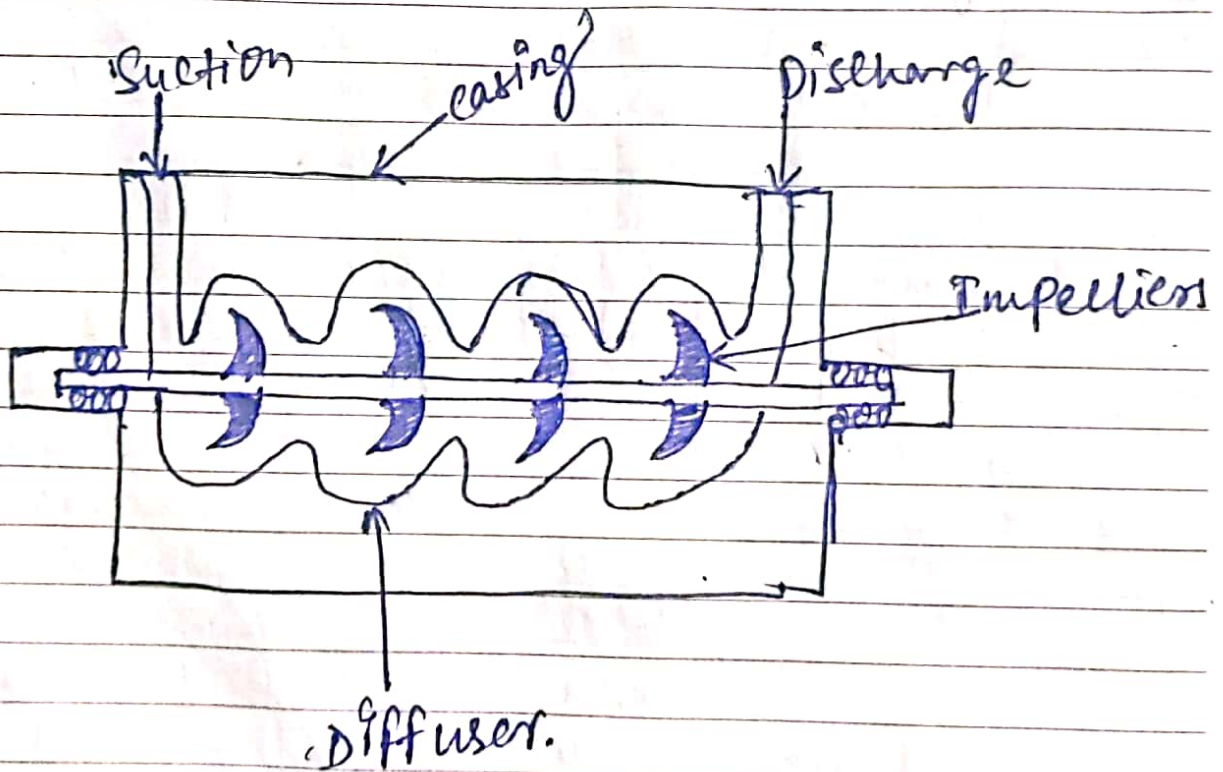 Suction
casing
Discharge
Impelliers
Diffuser.